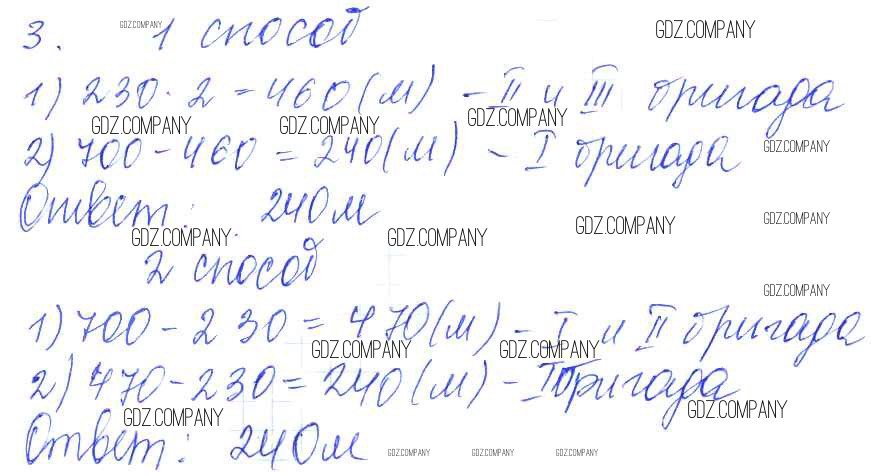 3. GDZ.COMPANY 1 способ GDZ.COMPANY
1) 230 · 2 = 460 (м) - II и III бригада
GDZ.COMPANY GDZ.COMPANY GDZ.COMPANY
2) 700 - 460 = 240 (м) - I бригада GDZ.COMPANY
Ответ: 240 м GDZ.COMPANY GDZ.COMPANY
GDZ.COMPANY GDZ.COMPANY
2 способ
GDZ.COMPANY
1) 700 - 230 = 470 (м) - I и II бригада
GDZ.COMPANY GDZ.COMPANY
2) 470 - 230 = 240 (м) - I бригада
GDZ.COMPANY GDZ.COMPANY
Ответ: 240 м GDZ.COMPANY GDZ.COMPANY GDZ.COMPANY